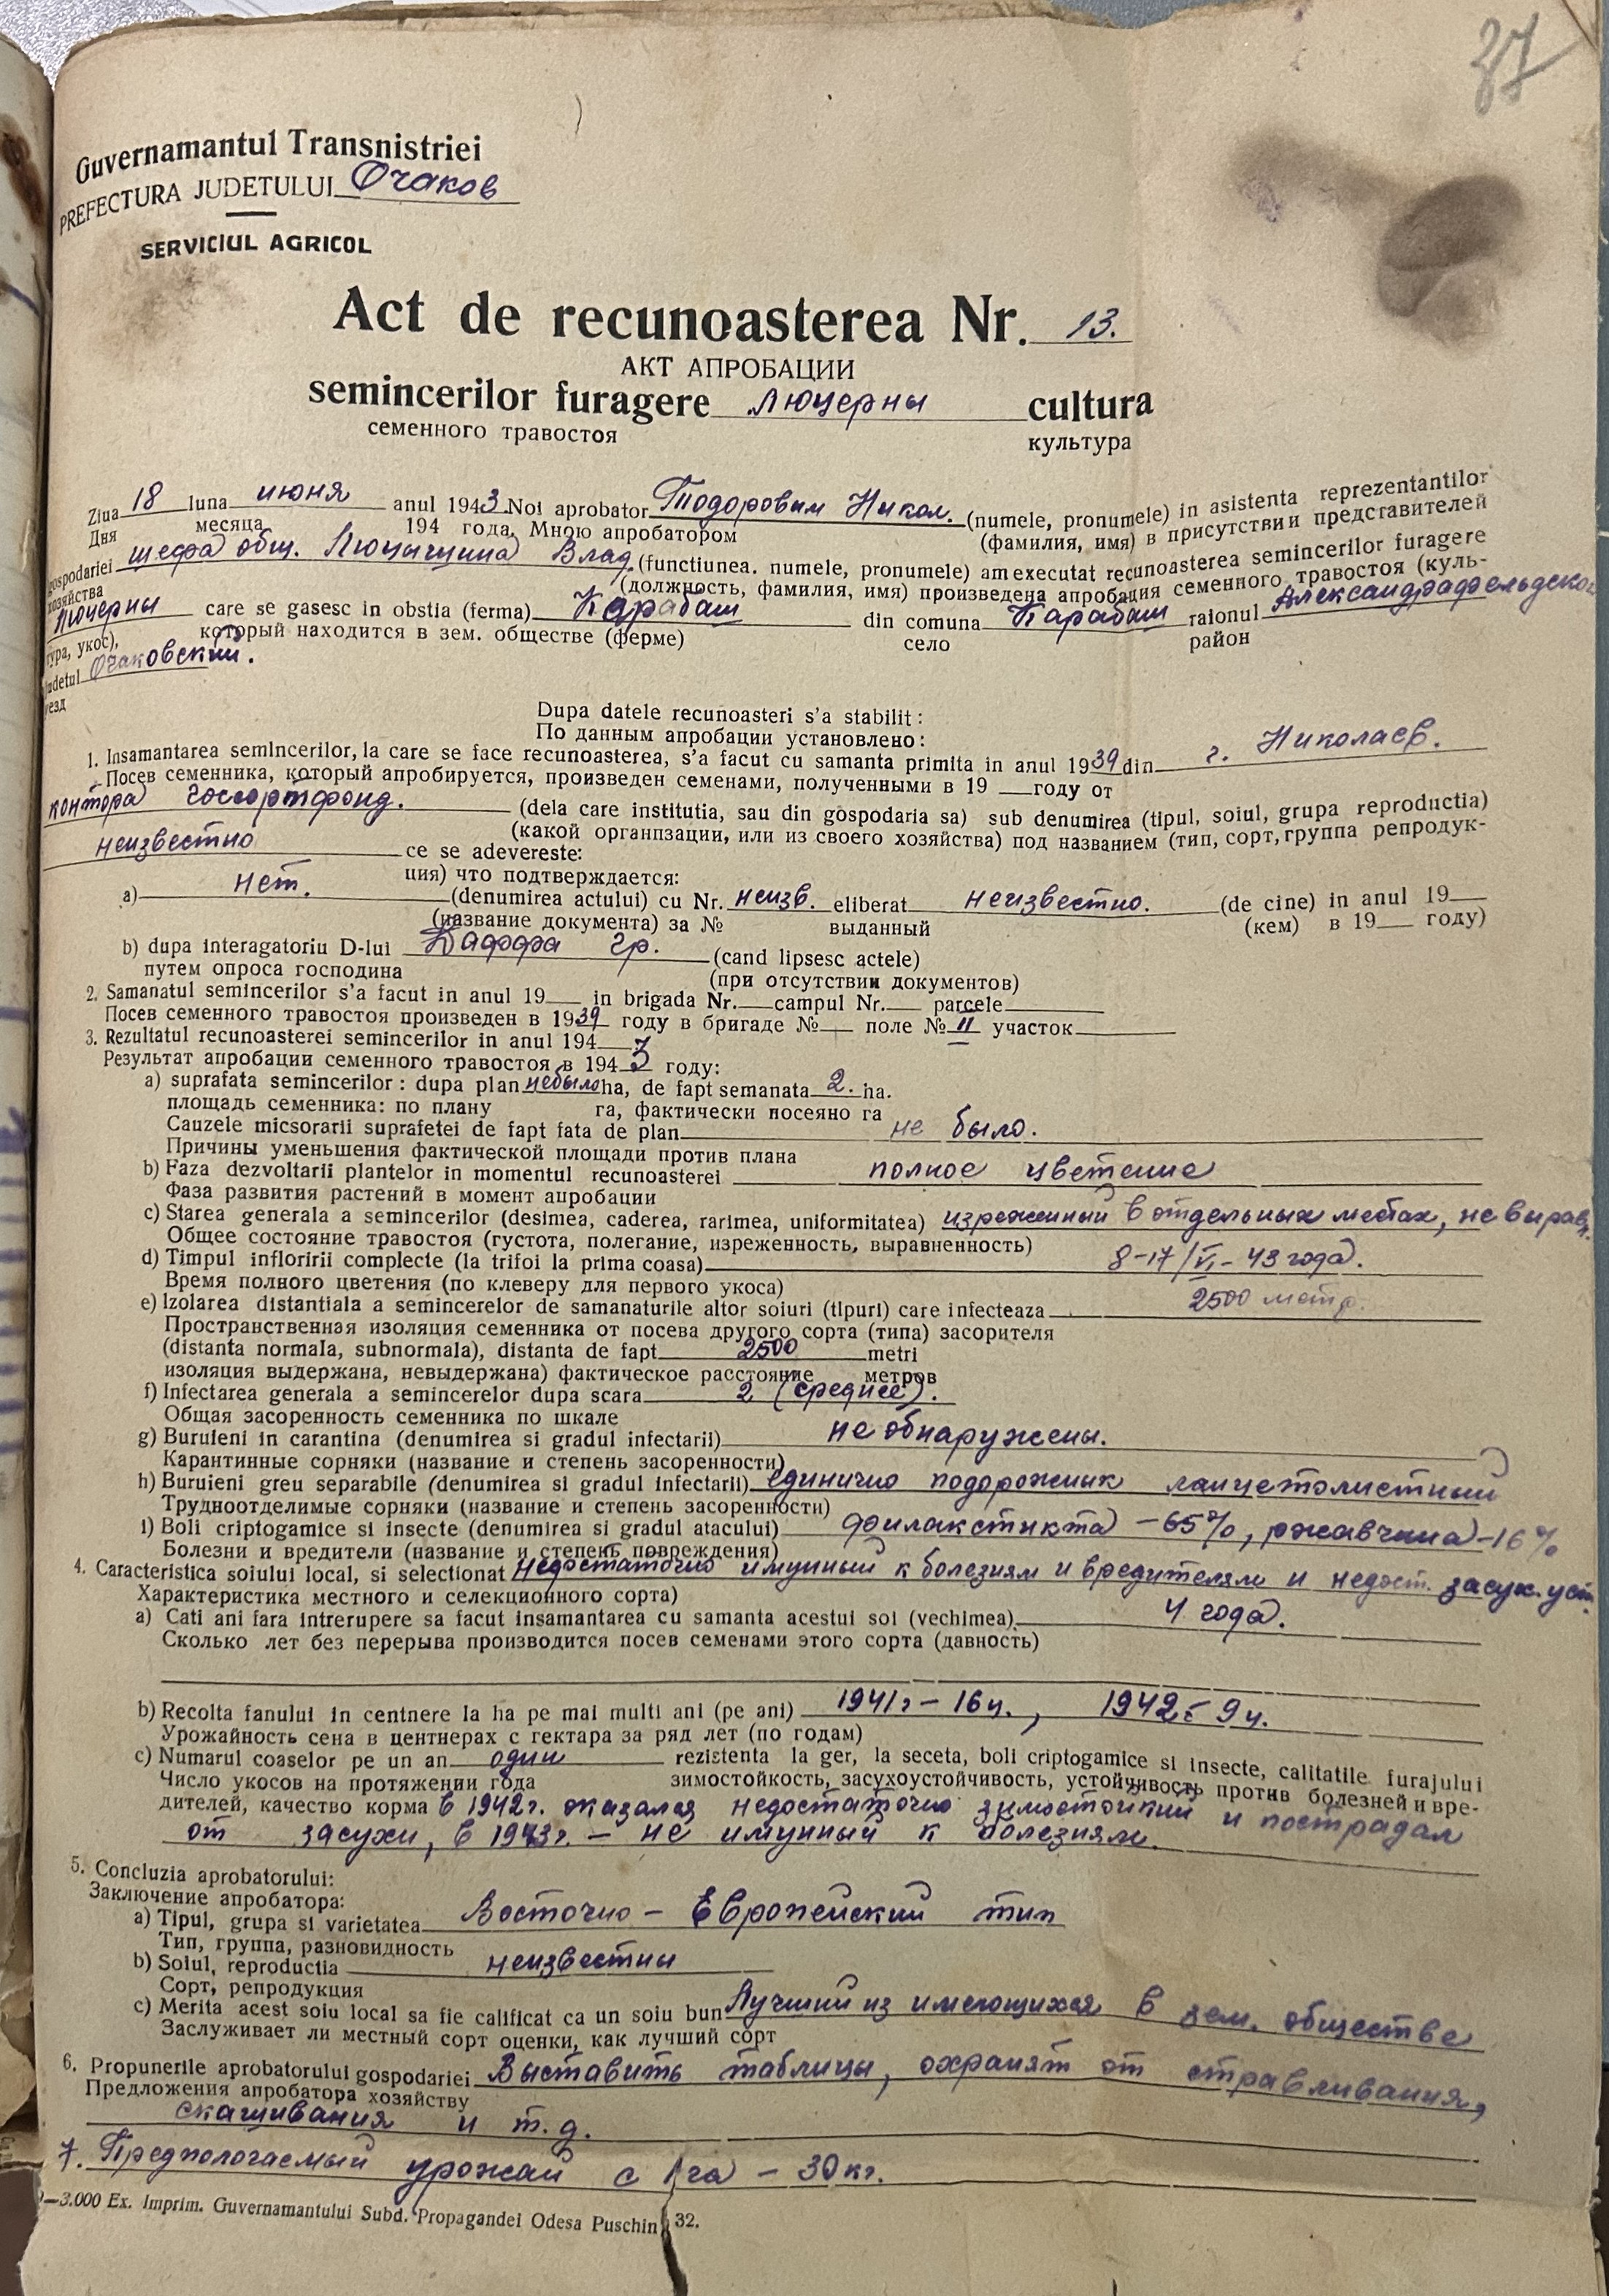 37
Guvernamantul Transnistriei
PREFECTURA JUDETULUI Очаков
SERVICIUL AGRICOL
Act de recunoasterea Nr. 13.
АКТ АПРОБАЦИИ
semincerilor furagere люцерны cultura
семенного травостоя культура
Ziua 18 luna июня anul 1943 Noi aprobator Тодоровым Никол. (numele, pronumele) in asistenta reprezentantilor
Дня месяца 194 года, Мною апробатором (фамилия, имя) в присутствии представителей
gospodariei шефа общ. Влад. (functiunea. numele, pronumele) am executat recunoasterea semincerilor furagere
хозяйства (должность, фамилия, имя) произведена апробация семенного травостоя (куль-
люцерны care se gasesc in obstia (ferma) Карабаш din comuna Карабаш raionul Александрафельдско
тура, укос), который находится в зем. обществе (ферме) село район
judetul Очаковский.
уезд
Dupa datele recunoasteri s'a stabilit:
По данным апробации установлено:
1. Insamantarea semincerilor, la care se face recunoasterea, s'a facut cu samanta primita in anul 1939 din г. Николаев.
Посев семенника, который апробируется, произведен семенами, полученными в 19 году от
контора Госсортфонд. (dela care institutia, sau din gospodaria sa) sub denumirea (tipul, soiul, grupa reproductia)
(какой органпзации, или из своего хозяйства) под названием (тип, сорт, группа репродук-
неизвестно ce se adevereste:
ция) что подтверждается:
a) нет. (denumirea actului) cu Nr. неизв. eliberat неизвестно. (de cine) in anul 19
(название документа) за № выданный (кем) в 19 году)
b) dupa interagatoriu D-lui Каффа Гр. (cand lipsesc actele)
путем опроса господина (при отсутствии документов)
2. Samanatul semincerilor s'a facut in anul 19 in brigada Nr. campul Nr. parcele
Посев семенного травостоя произведен в 1939 году в бригаде № поле № II участок
3. Rezultatul recunoasterei semincerilor in anul 194 3
Результат апробации семенного травостоя в 194 3 году:
a) suprafata semincerilor: dupa plan небыло ha, de fapt semanata 2. ha.
площадь семенника: по плану га, фактически посеяно га
Cauzele micsorarii suprafetei de fapt fata de plan не было.
Причины уменьшения фактической площади против плана
b) Faza dezvoltarii plantelor in momentul recunoasterei полное цветение
Фаза развития растений в момент апробации
c) Starea generala a semincerilor (desimea, caderea, rarimea, uniformitatea) изреженный в отдельных местах, не вырав.
Общее состояние травостоя (густота, полегание, изреженность, выравненность)
d) Timpul infloririi complecte (la trifoi la prima coasa) 8-17/VI-43 года.
Время полного цветения (по клеверу для первого укоса)
e) Izolarea distantiala a semincerelor de samanaturile altor soiuri (tipuri) care infecteaza 2500 метр.
Пространственная изоляция семенника от посева другого сорта (типа) засорителя
(distanta normala, subnormala), distanta de fapt 2500 metri
изоляция выдержана, невыдержана) фактическое расстояние метров
f) Infectarea generala a semincerelor dupa scara 2 (среднее).
Общая засоренность семенника по шкале
g) Buruieni in carantina (denumirea si gradul infectarii) не обнаружены.
Карантинные сорняки (название и степень засоренности)
h) Buruieni greu separabile (denumirea si gradul infectarii) единично подорожник ланцетолистный
Трудноотделимые сорняки (название и степень засоренности)
i) Boli criptogamice si insecte (denumirea si gradul atacului) филакстикта -65%, ржавчина -16%
Болезни и вредители (название и степень повреждения)
4. Caracteristica soiului local, si selectionat недостаточно имунный к болезиям и вредителям и недост. засух. уст.
Характеристика местного и селекционного сорта)
a) Cati ani fara intrerupere sa facut insamantarea cu samanta acestui soi (vechimea) 4 года.
Сколько лет без перерыва производится посев семенами этого сорта (давность)
b) Recolta fanului in centnere la ha pe mai multi ani (pe ani) 1941г - 16ц., 1942г - 9ц.
Урожайность сена в центнерах с гектара за ряд лет (по годам)
c) Numarul coaselor pe un an один rezistenta la ger, la seceta, boli criptogamice si insecte, calitatile furajului
Число укосов на протяжении года зимостойкость, засухоустойчивость, устойчивость против болезней и вре-
дителей, качество корма в 1942г. оказался недостаточно зимостойкий и пострадал
от засухи, в 1943г. - не имунный к болезиям.
5. Concluzia aprobatorului:
Заключение апробатора:
a) Tipul, grupa si varietatea Восточно - Европейский тип
Тип, группа, разновидность
b) Soiul, reproductia неизвестны
Сорт, репродукция
c) Merita acest soiu local sa fie calificat ca un soiu bun Лучший из имеющихся в зем. обществе
Заслуживает ли местный сорт оценки, как лучший сорт
6. Propunerile aprobatorului gospodariei Выставить таблицы, охранят от стравливания,
Предложения апробатора хозяйству
скашивания и т.д.
7. Предпологаемый урожай с 1 га - 30 кг.
—3.000 Ex. Imprim. Guvernamantului Subd. Propagandei Odesa Puschin 32.